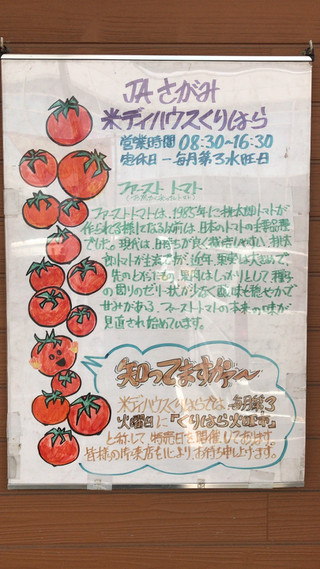 JA さがみ
米ディハウスくりはら
営業時間 08:30~16:30
定休日 ー毎月第3水曜日
ファースト トマト
ファーストトマトは、1985年に桃太郎トマトが
作られる様になる以前は、日本のトマトの主要品種
でした。現代は、日持ちが良く栽培しやすい、桃太
郎トマトが主流ですが、近年、果実は大きめで、
先のとがった、果肉はしっかりとして種子
の周りのゼリー状が少なく酸味も穏やかで
甘みがある、ファーストトマトの本来の味が
見直され始めています。
知ってますか~
米ディハウスくりはらでは、毎月第3
火曜日に『くりはら火曜市』
と称して、特売日を開催しております。
皆様の御来店を心より、お待ち申し上げます。